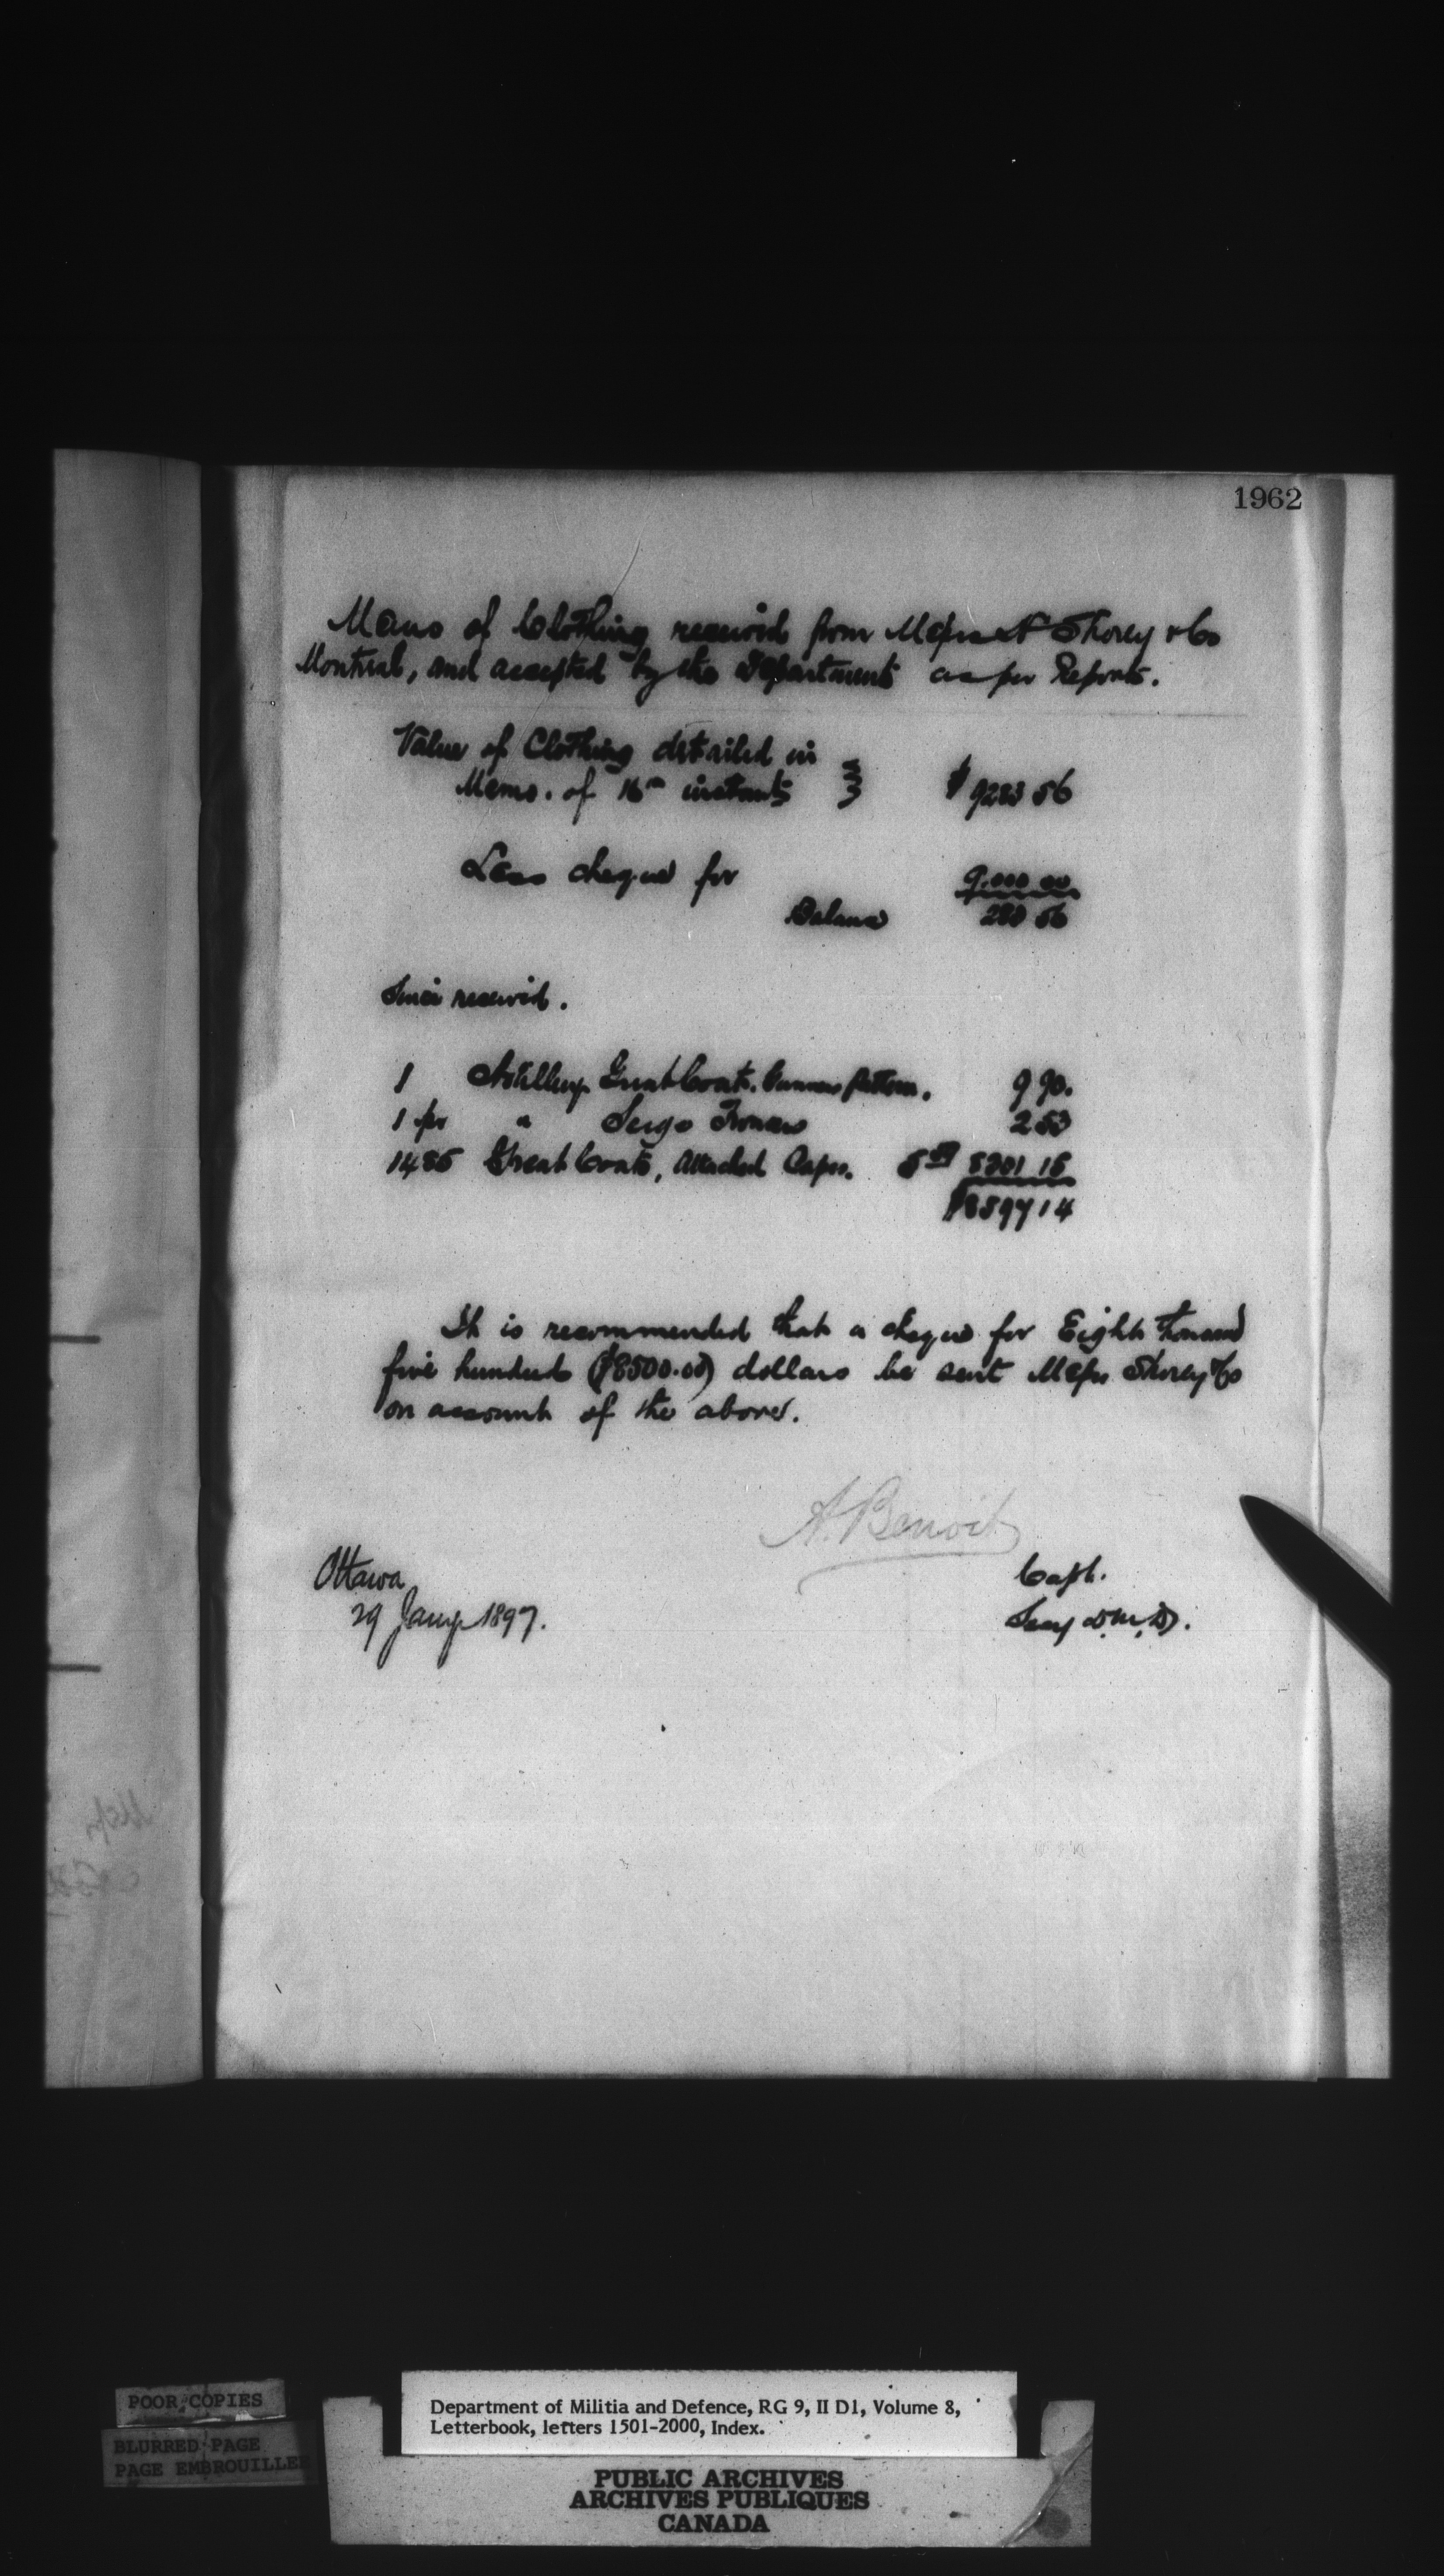 1962
Memo of Clothing received from Messrs H Shorey & Co
Montreal, and accepted by the Department as per Reports.
Value of Clothing detailed in
Memo. of 16th instant } $ 9283 56
Less cheque for 9.000 00
Balance 283 56
Since received.
1 Artillery Great Coat. Gunners pattern. 9 90.
1 pr " Serge Trousers 2 53
1485 Great Coats, Attached Capes. 5 59 8301 15
$8597 14
It is recommended that a cheque for Eight thousand
five hundred ($8500.00) dollars be sent Messrs Shorey & Co
on account of the above.
A. Benoit
Capt.
Secy D.M.D.
Ottawa
29 Jany 1897.
POOR COPIES
BLURRED PAGE
PAGE EMBROUILLEE
Department of Militia and Defence, RG 9, II D1, Volume 8,
Letterbook, letters 1501-2000, Index.
PUBLIC ARCHIVES
ARCHIVES PUBLIQUES
CANADA